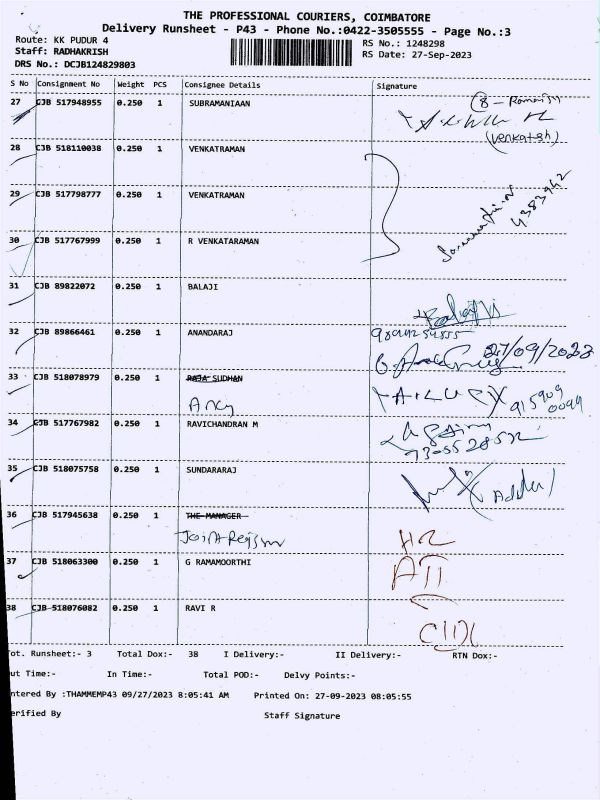 THE PROFESSIONAL COURIERS, COIMBATORE
Delivery Runsheet - P43 - Phone No.:0422-3505555 - Page No.:3
Route: KK PUDUR 4 RS No.: 1248298
Staff: RADHAKRISH RS Date: 27-Sep-2023
DRS No.: DCJB124829803
S No Consignment No Weight PCS Consignee Details Signature
27 CJB 517948955 0.250 1 SUBRAMANIAAN
(Venkatesh)
28 CJB 518110038 0.250 1 VENKATRAMAN
29 CJB 517798777 0.250 1 VENKATRMAN
30 CJB 517767999 0.250 1 R VENKATARAMAN
31 CJB 89822072 0.250 1 BALAJI
Balaji
32 CJB 89866461 0.250 1 ANANDARAJ
27/09/2023
33 CJB 518078979 0.250 1 RAJA SUDHAN
34 CJB 517767982 0.250 1 RAVICHANDRAN M
35 CJB 518075758 0.250 1 SUNDARARAJ
36 CJB 517945638 0.250 1 THE MANAGER
37 CJB 518063300 0.250 1 G RAMAMOORTHI
38 CJB 518076082 0.250 1 RAVI R
ot. Runsheet:- 3 Total Dox:- 38 I Delivery:- II Delivery:- RTN Dox:-
ut Time:- In Time:- Total POD:- Delvy Points:-
ntered By :THAMMEMP43 09/27/2023 8:05:41 AM Printed On: 27-09-2023 08:05:55
erified By Staff Signature